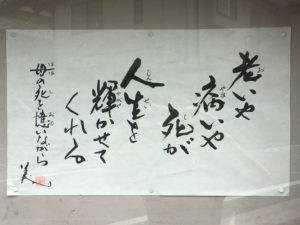 老いや
病いや
死が
人生を
輝かせて
くれる
母の死を憶いながら